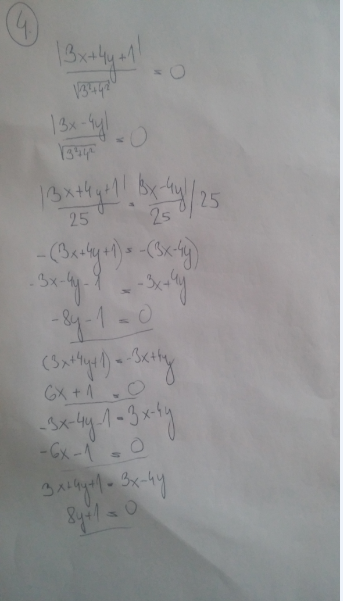 4.
|3x+4y+1| / √3²+4² = 0
|3x-4y| / √3²+4² = 0
|3x+4y+1| / 25 = |3x-4y| / 25 /25
-(3x+4y+1) = -(3x-4y)
-3x-4y-1 = -3x+4y
-8y-1 = 0
(3x+4y+1) = -3x+4y
6x+1 = 0
-3x-4y-1 = 3x-4y
-6x-1 = 0
3x+4y+1 = 3x-4y
8y+1 = 0